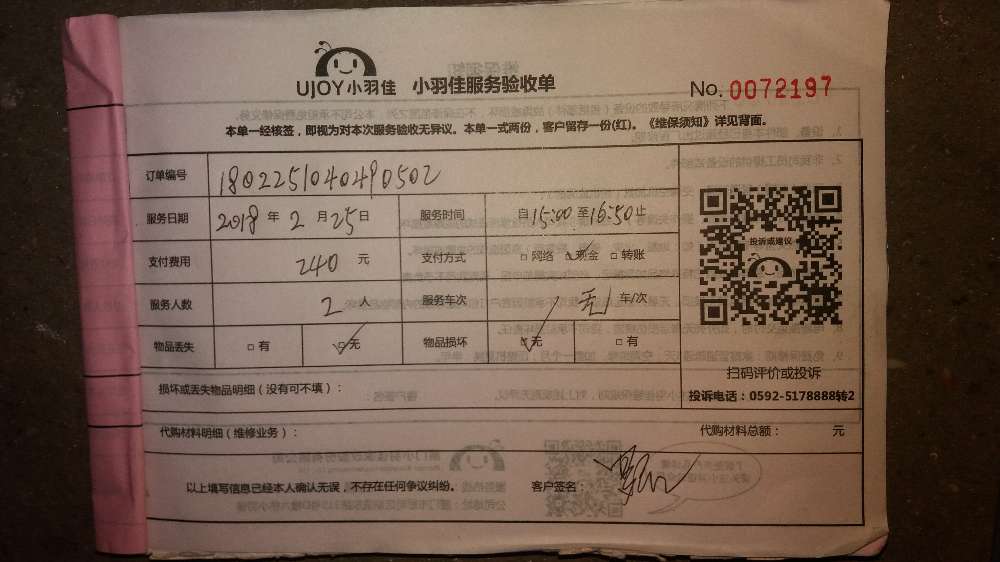 UJOY小羽佳 小羽佳服务验收单
No. 0072197
本单一经核签，即视为对本次服务验收无异议。本单一式两份，客户留存一份(红)。《维保须知》详见背面。
订单编号 1802251040490502
服务日期 2018 年 2 月 25 日 服务时间 自 15:00 至 16:50 止
支付费用 240 元 支付方式 □ 网络 ☑ 现金 □ 转账
服务人数 2 人 服务车次 无 车/次
物品丢失 □ 有 ☑ 无 物品损坏 ☑ 无 □ 有
投诉或建议
扫码评价或投诉
投诉电话：0592-5178888转2
损坏或丢失物品明细（没有可不填）：
代购材料明细（维修业务）： 代购材料总额： 元
以上填写信息已经本人确认无误，不存在任何争议纠纷。 客户签名：